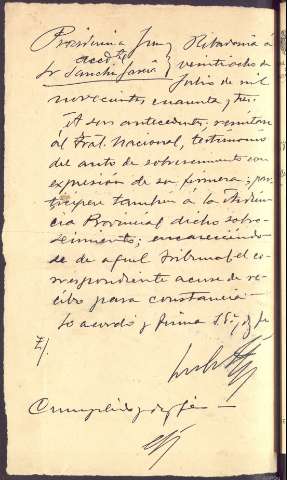 Providencia Juez
accdtal
Sr Sanchez García
Ribadavia á
veintiocho de
Julio de mil
novecientos cuarenta y tres.
A sus antecedentes, remitase
al Tral. Nacional, testimonio
del auto de sobreseimiento con
expresión de su firmeza; par
ticipese tambien á la Audien
cia Provincial dicho sobre-
seimiento; encareciendo
se de aquel Tribunal el co-
rrespondiente acuse de re-
cibo para constancia.
Lo acordó y firma S.Sª, doy fe
E/.
Cumplido, doy fe. —